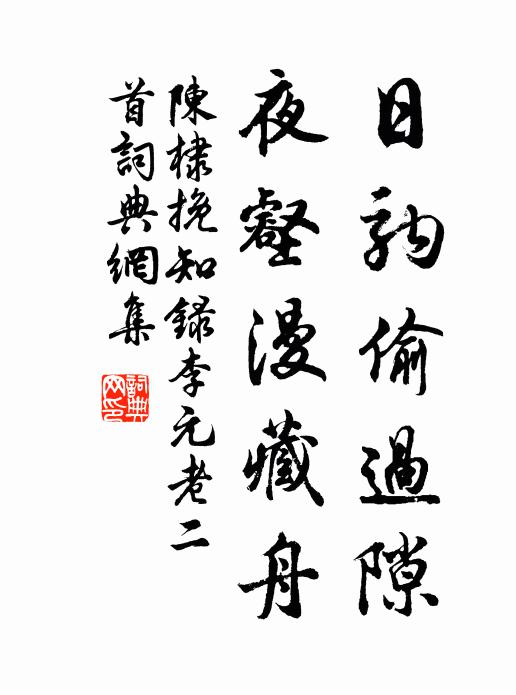 日駒偷過隙
夜壑漫藏舟
陳棣挽知録李元老二
首詞典網集
詞典
网印